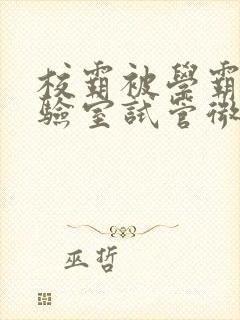 校霸被學霸
驗室試管微
巫哲